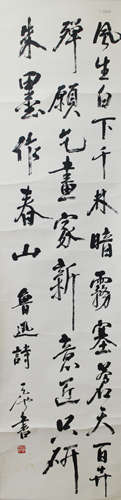 風生白下千林暗霧塞蒼天百卉
殫願乞畫家新意匠只研
朱墨作春山
魯迅詩
書